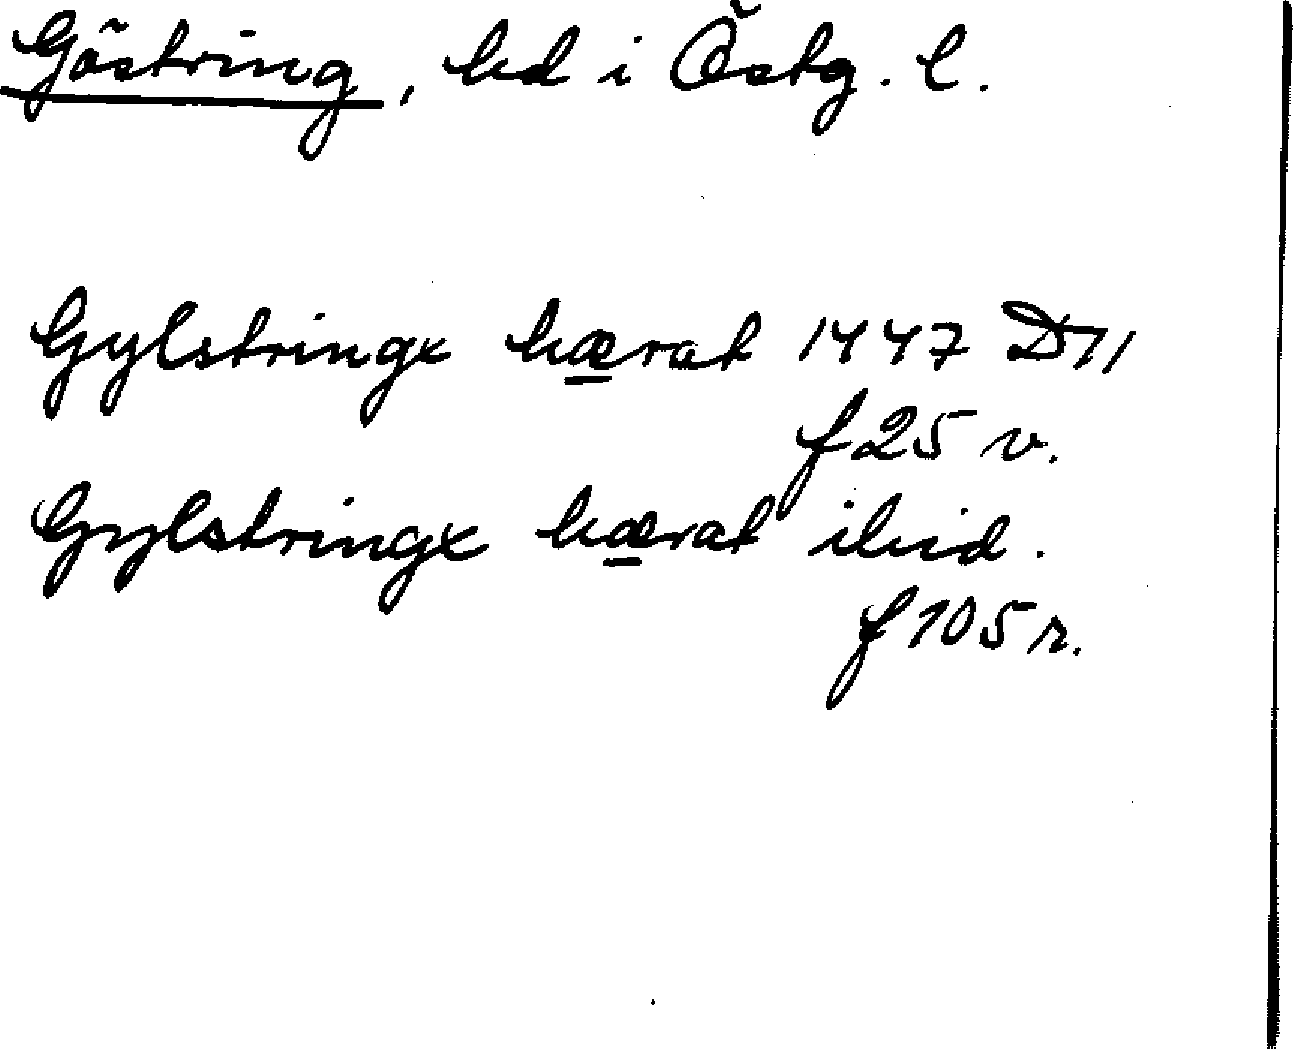 Göstring, hd i Östg. l.
Gylstringx hærat 1447 D11
f 25 v.
Gylstringx hærat ibid.
f 105 r.